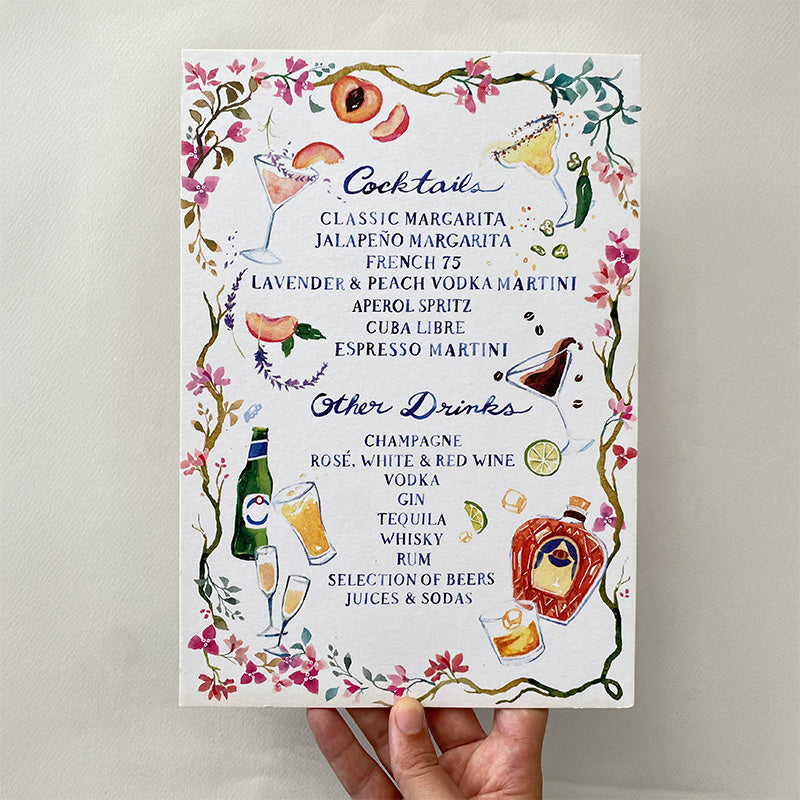 Cocktails
CLASSIC MARGARITA
JALAPEÑO MARGARITA
FRENCH 75
LAVENDER & PEACH VODKA MARTINI
APEROL SPRITZ
CUBA LIBRE
ESPRESSO MARTINI
Other Drinks
CHAMPAGNE
ROSÉ, WHITE & RED WINE
VODKA
GIN
TEQUILA
WHISKY
RUM
SELECTION OF BEERS
JUICES & SODAS